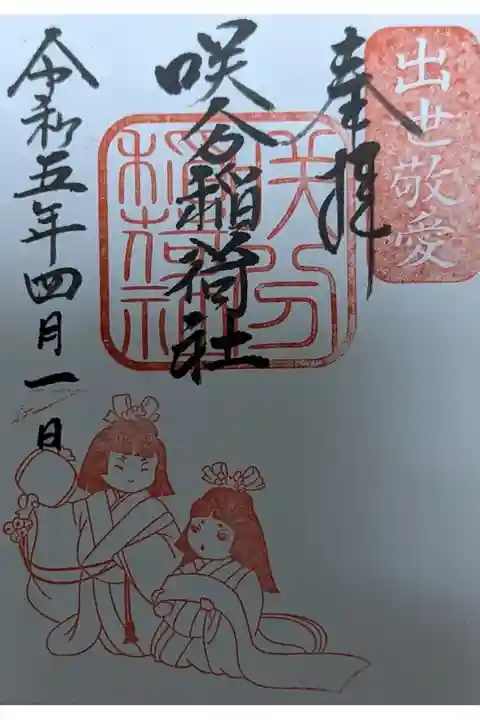 出世敬愛
奉拝
咲分稲荷社
咲分
稲荷社
令和五年四月一日